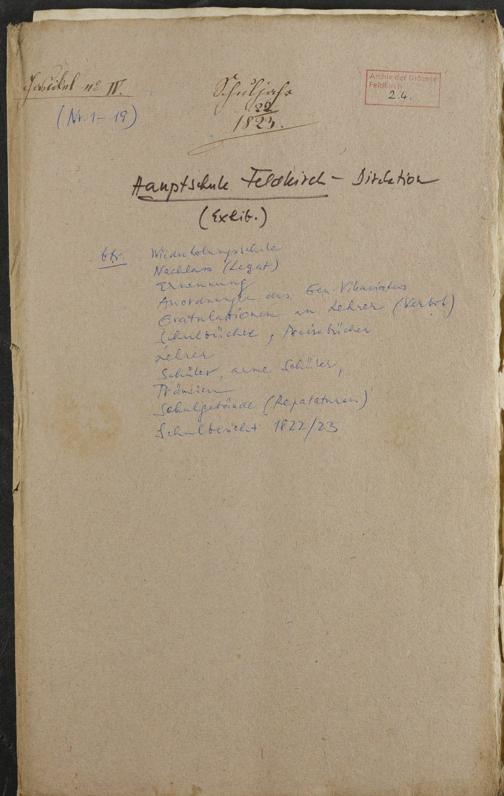 Fascikel no IV.
(Nr. 1-19)
Schuljahr
22
1823.
Archiv der Diözese
Feldkirch
2.4.
Hauptschule Feldkirch - Direktion
(Exib.)
btr. Wiederholungsschule
Nachlass (Legat)
Ernennung
Anordnungen des Gen. Vikariates
Gratulationen an Lehrer (Verbot)
Schulbücher, Preisebücher
Lehrer
Schüler, arme Schüler,
Prämien
Schulgebäude (Reparaturen)
Schulbericht 1822/23